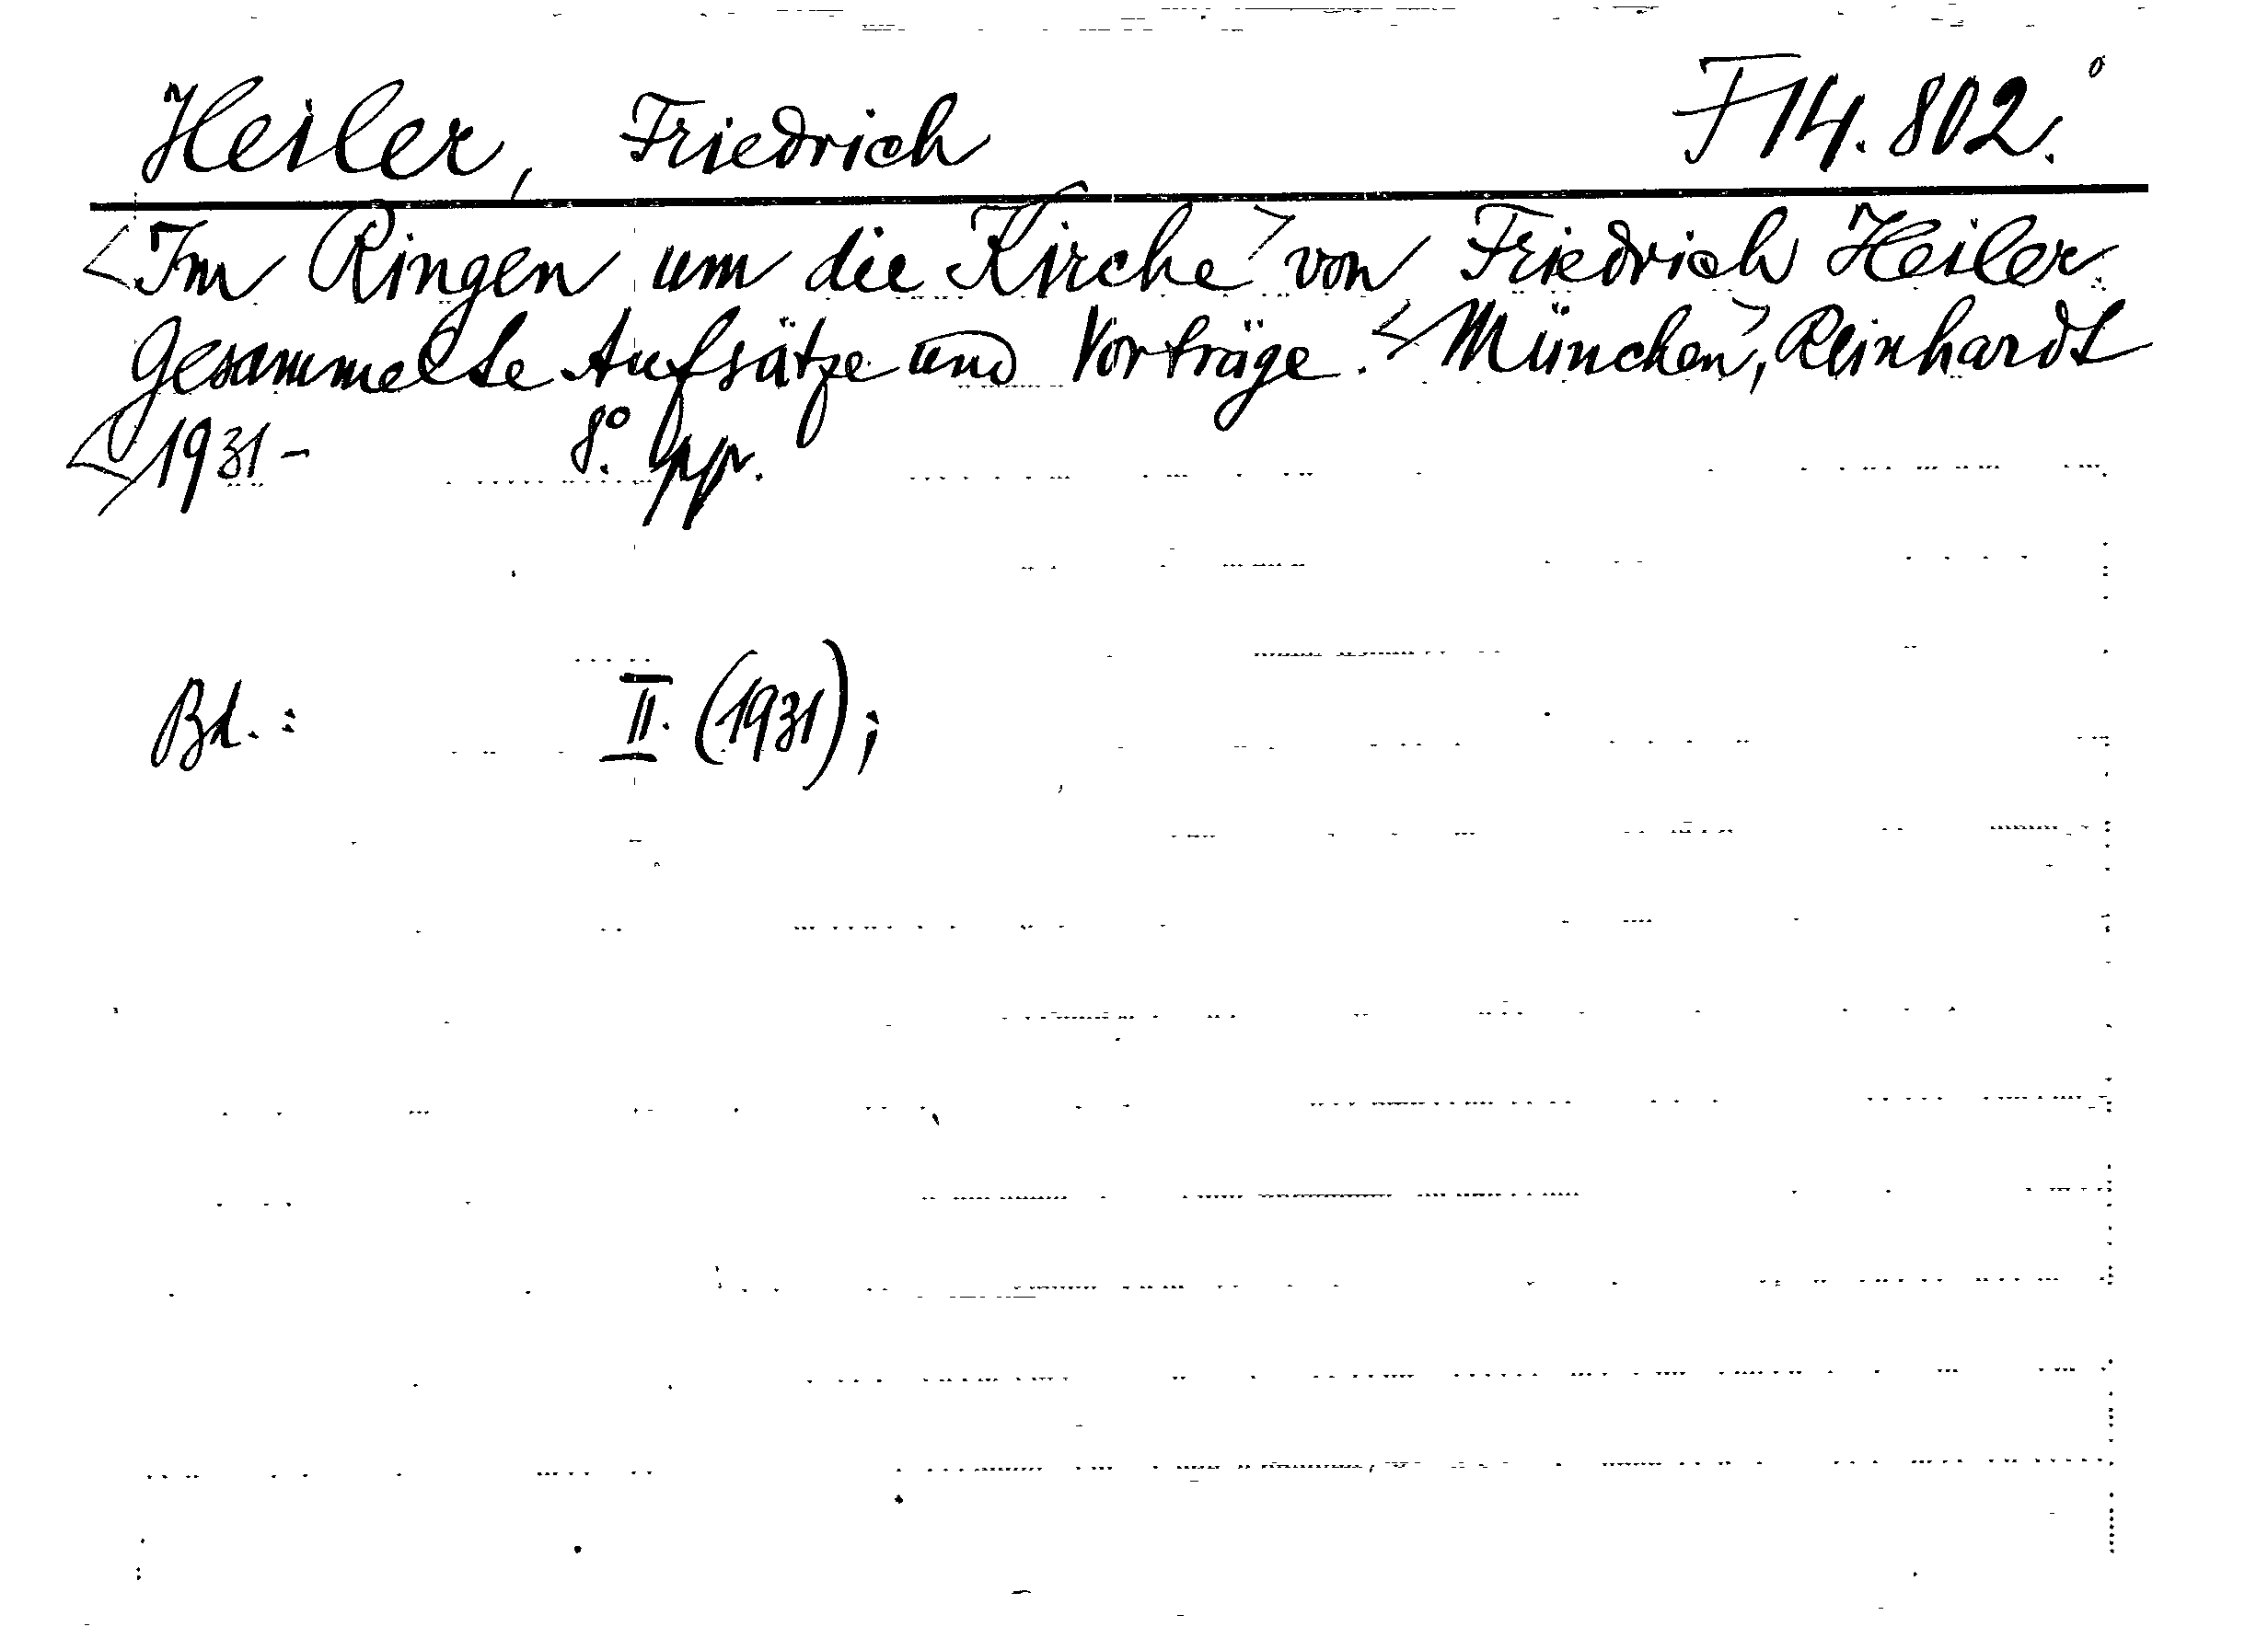 Heiler, Friedrich F 14.802.°
<Im Ringen um die Kirche> von Friedrich Heiler.
Gesammelte Aufsätze und Vorträge. <München>, Reinhardt
<1931- 8°. pp.
Bd.: II. (1931);